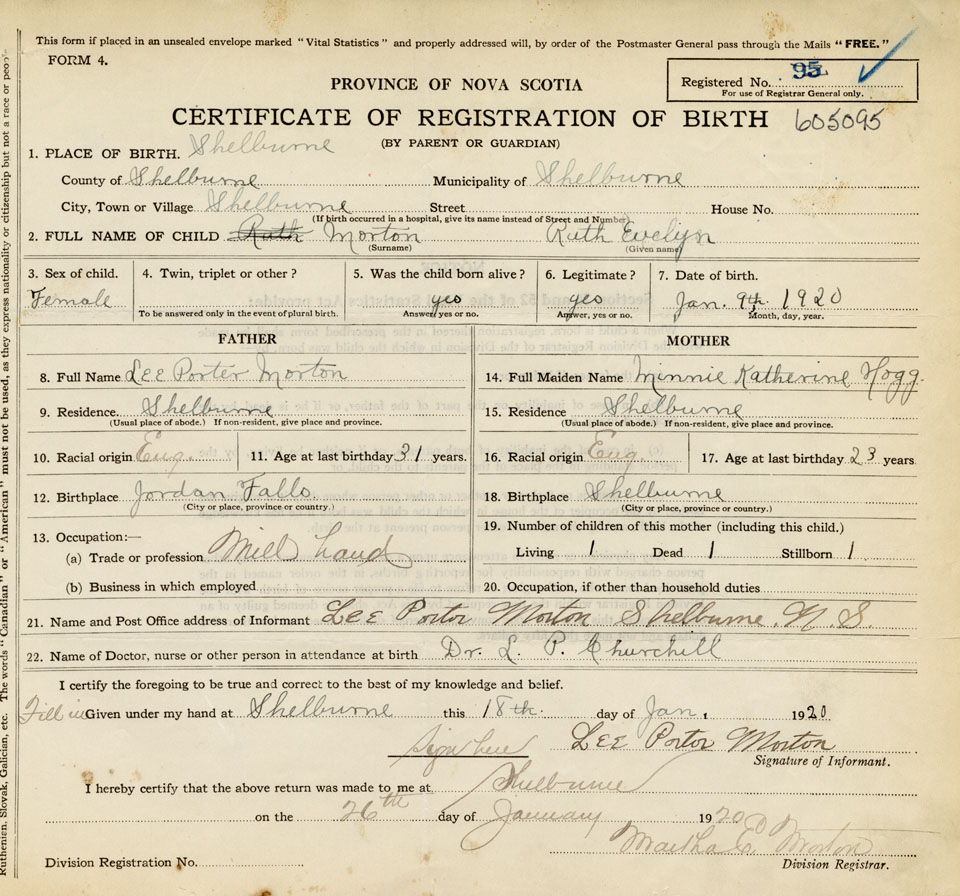 This form if placed in an unsealed envelope marked "Vital Statistics" and properly addressed will, by order of the Postmaster General pass through the Mails "FREE."
FORM 4.
Registered No. 95
For use of Registrar General only.
PROVINCE OF NOVA SCOTIA
CERTIFICATE OF REGISTRATION OF BIRTH 605095
(BY PARENT OR GUARDIAN)
1. PLACE OF BIRTH. Shelburne
County of Shelburne Municipality of Shelburne
City, Town or Village Shelburne Street House No.
(If birth occurred in a hospital, give its name instead of Street and Number)
2. FULL NAME OF CHILD Ruth Morton Ruth Evelyn
(Surname) (Given name)
3. Sex of child. 4. Twin, triplet or other? 5. Was the child born alive? 6. Legitimate? 7. Date of birth.
Female yes yes Jan. 9th. 1920
To be answered only in the event of plural birth. Answer, yes or no. Answer, yes or no. Month, day, year.
FATHER MOTHER
8. Full Name Lee Porter Morton 14. Full Maiden Name Minnie Katherine Hogg.
9. Residence. Shelburne 15. Residence Shelburne
(Usual place of abode.) If non-resident, give place and province. (Usual place of abode.) If non-resident, give place and province.
10. Racial origin Eng. 11. Age at last birthday 31 years. 16. Racial origin Eng. 17. Age at last birthday 23 years
12. Birthplace Jordan Falls. 18. Birthplace Shelburne
(City or place, province or country.) (City or place, province or country.)
13. Occupation:— 19. Number of children of this mother (including this child.)
(a) Trade or profession Mill hand Living 1 Dead 1 Stillborn 1
(b) Business in which employed 20. Occupation, if other than household duties
21. Name and Post Office address of Informant Lee Porter Morton Shelburne. N. S.
22. Name of Doctor, nurse or other person in attendance at birth Dr. L. P. Churchill
I certify the foregoing to be true and correct to the best of my knowledge and belief.
Fill in Given under my hand at Shelburne this 18th. day of Jan. 1920
Sign here Lee Porter Morton
Signature of Informant.
I hereby certify that the above return was made to me at Shelburne
on the 26th day of January 1920
Martha E Morton
Division Registration No. Division Registrar.
Ruthenian, Slovak, Galician, etc. The words "Canadian" or "American" must not be used, as they express nationality or citizenship but not a race or people